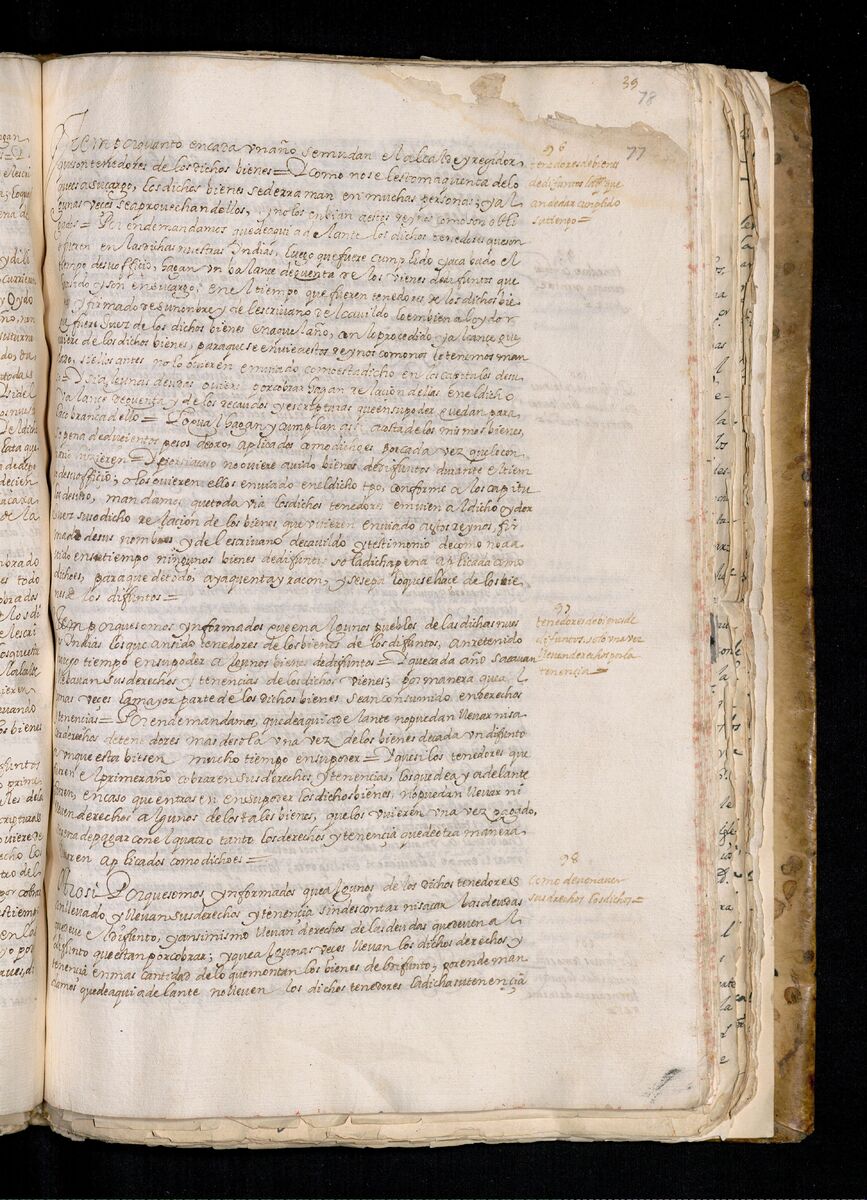 39
78
77
Item porquanto encada un año semudan el alcalde y regidor
queson tenedores de los dichos bienes = Y como nose lestoma quenta delo
queesasucargo, los dichos bienes sederraman en muchas personas; y al
gunas veces seaprovechan dellos, y no los enbian aestos reynos como son obli
gados = Por ende mandamos quedeaqui adelante los dichos tenedores queson
o fueren en las dichas nuestras Indias, luego que fuere cumplido y acabado el
tiempo desu officio, hagan un balance dequenta de los bienes dedifuntos que
an sido y son en sucargo, en el tiempo que fueren tenedores de los dichos bie
nes y firmado de sunombre y de lescrivano de cavildo loembien al oydor
que fuere Juez de los dichos bienes enaquel año, con lo procedido y alcance que
uviere de los dichos bienes, paraque se envie aestos reynos como nos lo tenemos man
dado, siellos antes no lo ovieren enviado como esta dicho en los capitulos desu
so = Y si algunas deudas oviere porcobrar hagan relacion dellas en el dicho
valance dequenta y de los recaudos y escripturas queensupoder quedan para
la cobranca dello = Lo qual hagan y cumplan assi acosta de los mismos bienes,
so pena de docientos pesos deoro, aplicados como dicho es porcada vez que lo con
trario hizieren = Y si por caso no oviere avido bienes dedifuntos durante el tiem
po desu officio; o los ovieren ellos enviado en el dicho tpo, conforme a los capitu
los desuso, mandamos que todavia los dichos tenedores emvien al dicho oydor
Juez suso dicho relacion de los bienes que uvieren enviado aestos reynos, fir
mada desus nombres y del escrivano de cavildo y testimonio decomo no a a
vido ensu tiempo ningunos bienes dedifuntos so la dicha pena aplicada como
dicho es, para que de todo aya quenta y racon, y se sepa lo que se hace de los bie
nes de los difuntos =
96
tenedores de bienes
de difuntos lo que
an de dar cumplido
su tiempo =
Item porque somos ynformados que en algunos pueblos de las dichas nues
tras Indias los que an sido tenedores de los bienes de los difuntos, an retenido
mucho tiempo en su poder algunos bienes dedifuntos = Y que cada año sacavan
y llevavan sus derechos y tenencias de los dichos vienes; por manera que al
gunas veces la mayor parte de los dichos bienes sean consumido en derechos
y tenencias = Por ende mandamos, quedeaqui adelante no puedan llevar ni sa
car derechos de tenedores mas de sola una vez de los bienes decada un difunto
aunque estubiesen mucho tiempo en su poder = Y que si los tenedores que
fueren el primer año cobraren sus derechos, y tenencias, los que dea y adelante
fueren, en caso que entrasen en su poder los dichos bienes, no puedan llevar ni
lleven derechos algunos de los tales bienes, que los uvieren una vez pagado,
so pena de pagar con el quatro tanto los derechos y tenençia que de otra manera
llevaren aplicados como dicho es =
97
tenedores de bienes de
difuntos, solo una vez
lleven derechos por la
tenençia =
Otrosi Porque somos ynformados que algunos de los dichos tenedores
an llevado y llevan sus derechos y tenencia sin descontar ni sacar las deudas
que deve el difunto, y ansimismo llevan derechos de las deudas que deven al
difunto que estan por cobrar; y que algunas veces llevan los dichos derechos y
tenencia en mas cantidad de lo que montan los bienes del difunto; por ende man
damos quedeaqui adelante no lleven los dichos tenedores la dicha su tenençia
98
como deven aver
sus derechos los dichos =